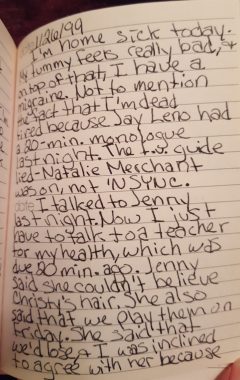 1/26/99
I'm home sick today.
My tummy feels really bad, &
on top of that, I have a
migraine. Not to mention
the fact that I'm dead
tired because Jay Leno had
a 20-min. monologue
last night. The t.v. guide
lied-Natalie Merchant
was on, not 'NSYNC.
I talked to Jenny
last night. Now I just
have to talk to a teacher
for my health, which was
due 20 min. ago. Jenny
said she couldn't believe
Christy's hair. She also
said that we play them on
Friday. She said that
we'd lose & I was inclined
to agree with her because